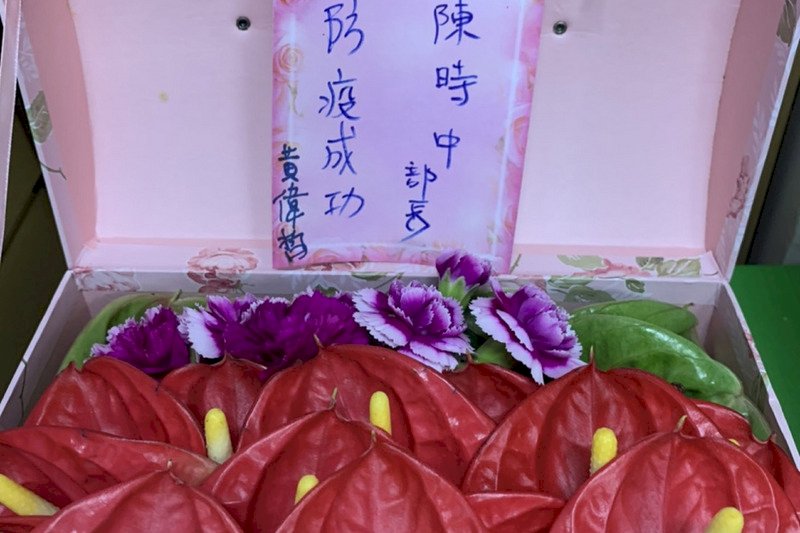 陳時中
部長
防疫成功
黃偉哲